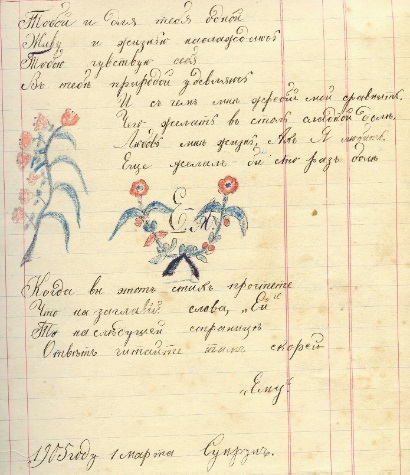 Тобой и для тебя одной
Живу и жизнью наслаждаюсь
Тобою чувствую себя
Въ тебѣ природой удивляюсь
И съ чемъ мнѣ жребій мой сравнить.
Чего желать въ столь сладкой долѣ.
Любовь мнѣ жизнь, Ахъ Я
Еще желалъ бы сто разъ болѣ
Когда вы этотъ стихъ прочтете
Что на заглавіи слова, „Ей“
То на слѣдущей страницѣ
Отвѣтъ читайте тамъ скорей
„Ему“.
1905 году 1 марта